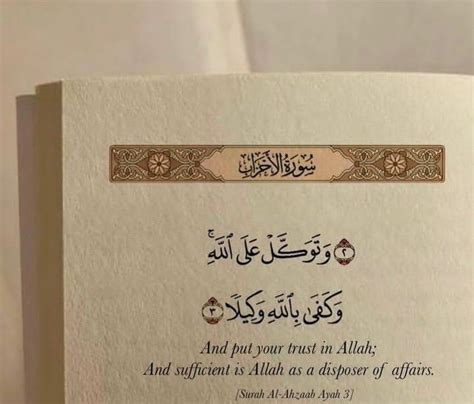 سُورَةُ الأَحْزَابِ
٢ وَتَوَكَّلْ عَلَى ٱللَّهِۚ
وَكَفَىٰ بِٱللَّهِ وَكِيلًا ٣
And put your trust in Allah;
And sufficient is Allah as a disposer of affairs.
[Surah Al-Ahzaab Ayah 3]